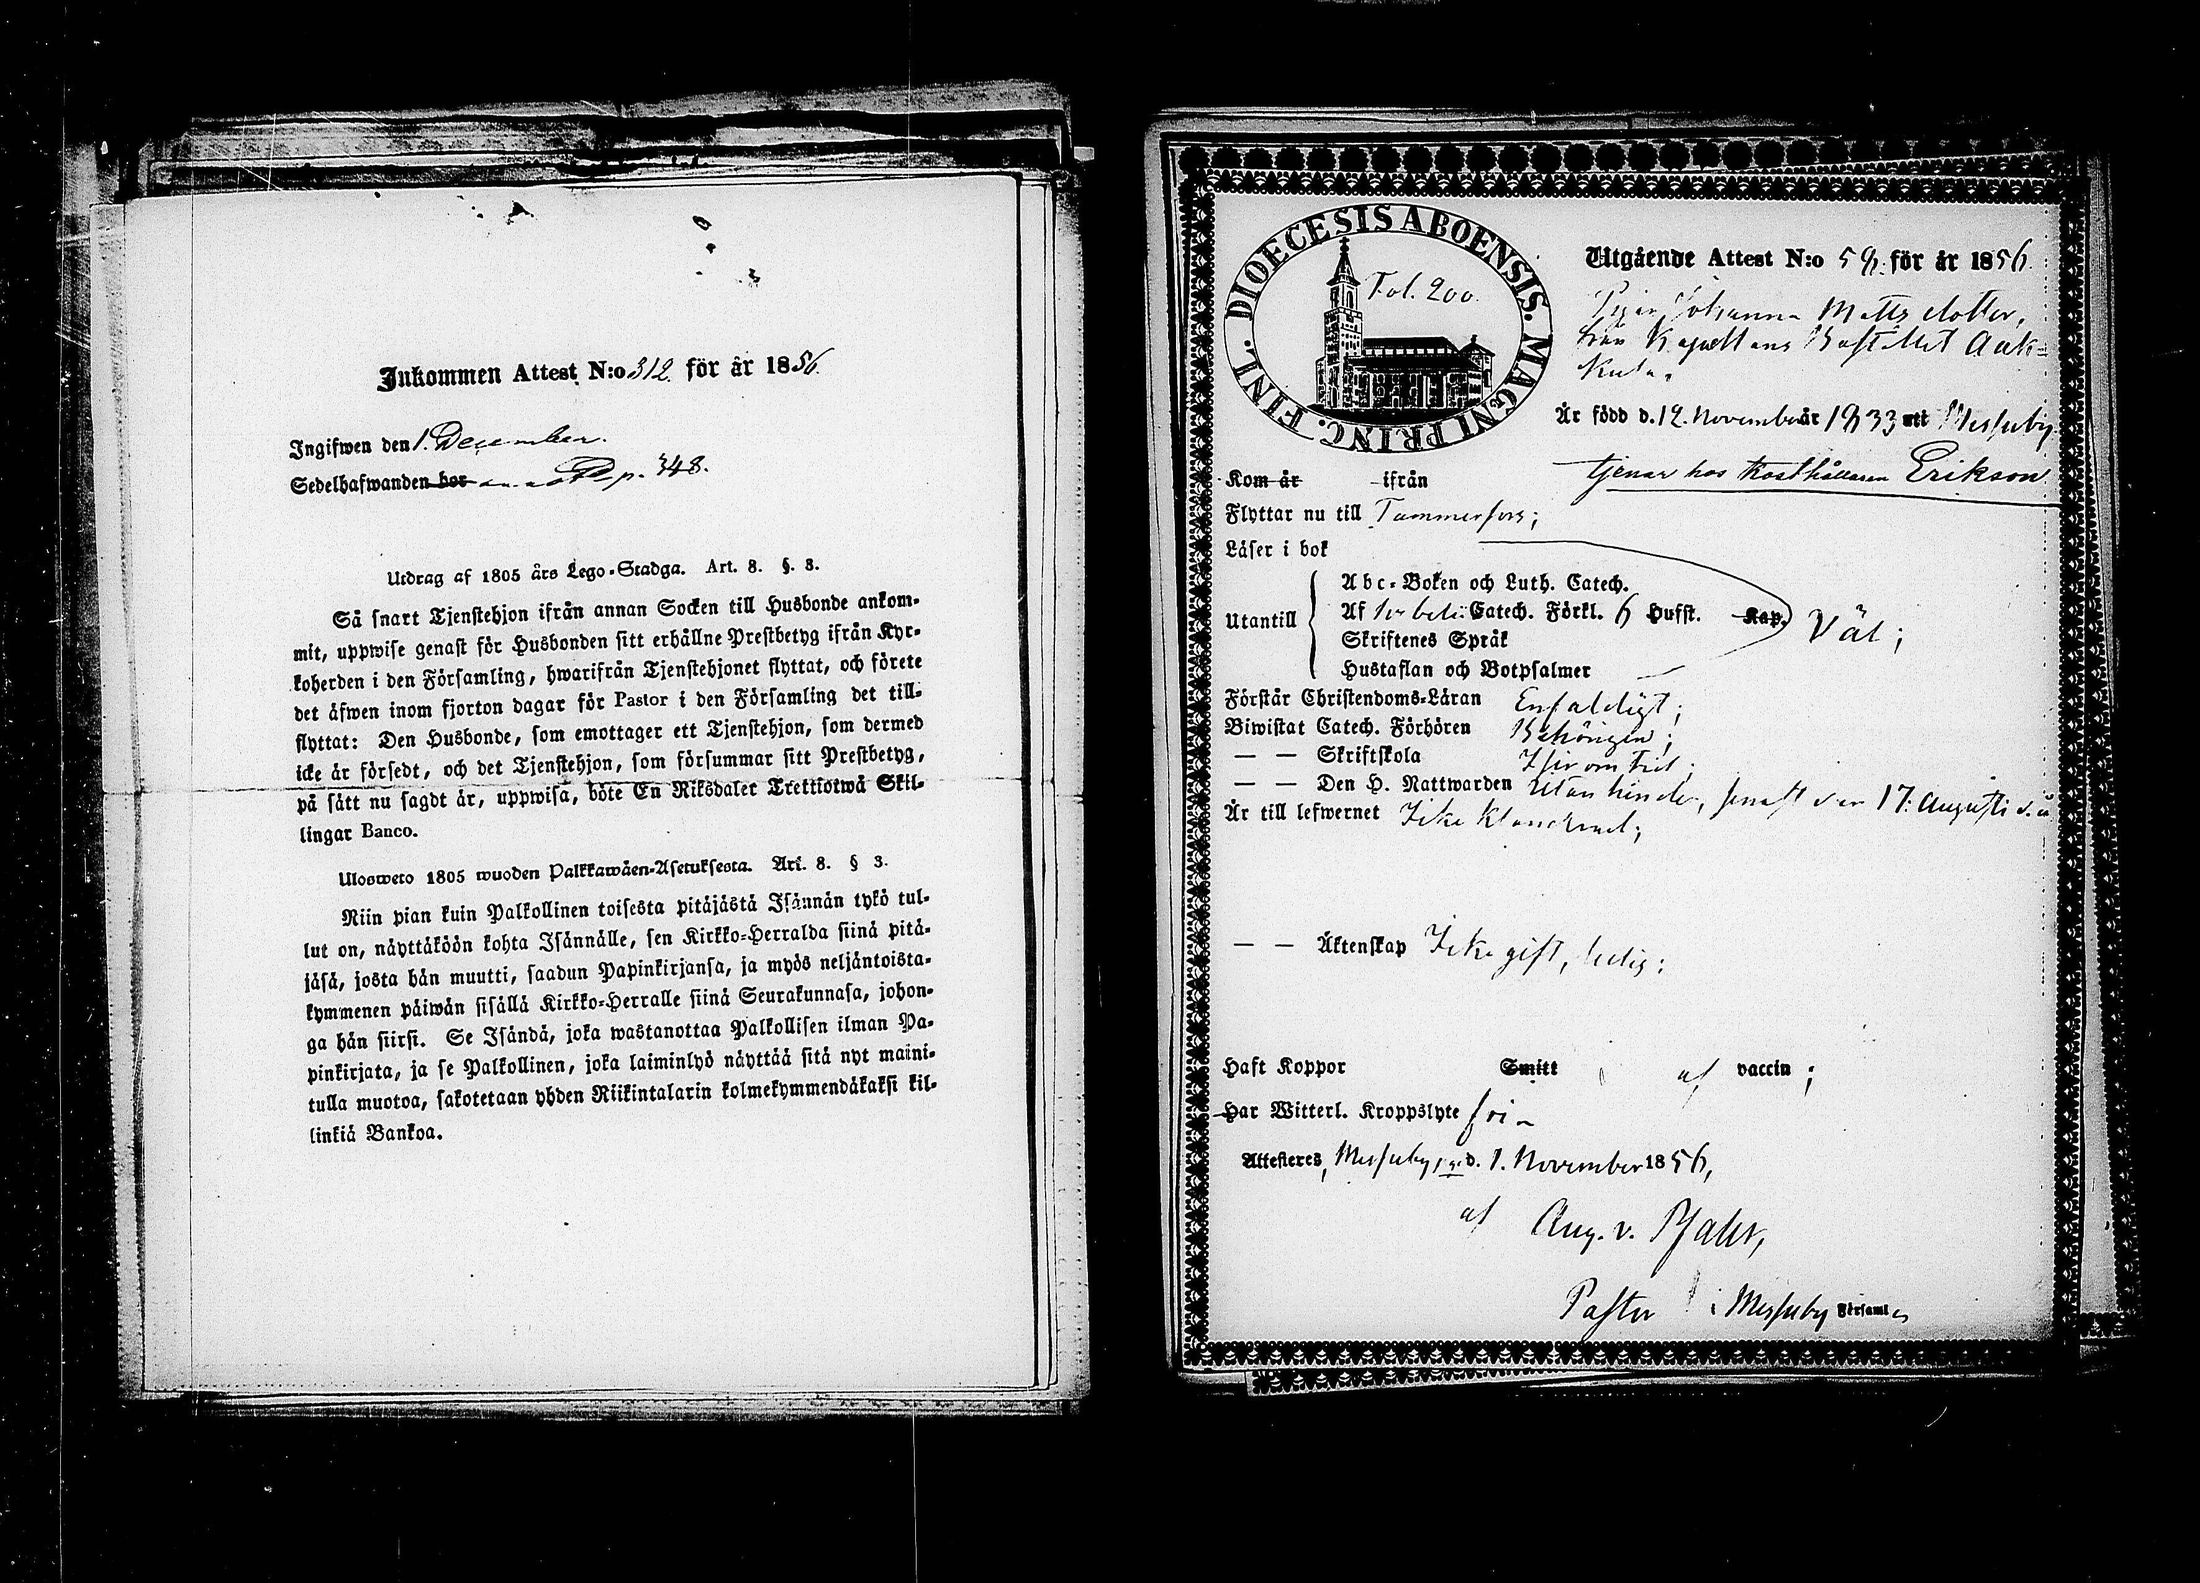 Inkommen Attest N:o 312. för år 1856.
Ingifwen den 1. December.
Sedelhafwanden bor p. 348.
Utdrag af 1805 års Lego-Stadga. Art. 8. §. 3.
Så snart Tjenstehjon ifrån annan Socken till Husbonde ankom-
mit, uppwise genast för Husbonden sitt erhållne Prestbetyg ifrån Kyr-
koherden i den Församling, hwarifrån Tjenstehjonet flyttat, och förete
det äfwen inom fjorton dagar för Pastor i den Församling det till-
flyttat: Den Husbonde, som emottager ett Tjenstehjon, som dermed
icke är försedt, och det Tjenstehjon, som försummar sitt Prestbetyg,
på sätt nu sagdt är, uppwisa, böte En Riksdaler Trettiotwå Skil-
lingar Banco.
Ulosweto 1805 wuoden Palkkawäen-Asetuksesta. Art. 8. § 3.
Niin pian kuin Palkollinen toisesta pitäjästä Isännän tykö tul-
lut on, näyttäköön kohta Isännälle, sen Kirkko-Herralda siinä pitä-
jäsä, josta hän muutti, saadun Papinkirjansa, ja myös neljäntoista-
kymmenen päiwän sisällä Kirkko-Herralle siinä Seurakunnasa, johon-
ga hän siirsi. Se Isändä, joka wastanottaa Palkollisen ilman Pa-
pinkirjata, ja se Palkollinen, joka laiminlyö näyttää sitä nyt maini-
tulla muotoa, sakotetaan yhden Riikintalarin kolmekymmendäkaksi kil-
linkiä Bankoa.
DIOECESIS ABOENSIS. MAGNI PRINC. FINL.
Fol. 200.
Utgående Attest N:o 58. för år 1856.
Pigan Johanna Matts dotter,
från Kapellans Bostället Aak-
kula.
Är född d. 12. November år 1833 uti Messuby.
tjenar hos Kosthållaren Erikson
Kom år ifrån
Flyttar nu till Tammerfors;
Läser i bok
Utantill
Abc-Boken och Luth. Catech.
Af Catech. Förkl. 6 Hufst. Kap.
Väl;
Skriftenes Språk
Hustaflan och Botpsalmer
Förstår Christendoms-Läran Enfaldigt;
Biwistat Catech. Förhören Behörigen;
— — Skriftskola
— — Den H. Nattwarden Utan hinder, senast den 17. Augusti d. å
Är till lefwernet Icke klandrad;
— — Äktenskap Icke gift, ledig;
Haft Koppor Smitt af vaccin;
Har Witterl. Kroppslyte
Attesteres, Messuby, d. 1. November 1856,
af Aug. v. Pfaler,
Pastor i Messuby Församl.